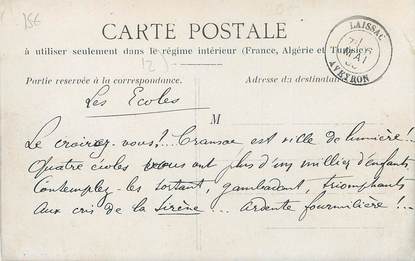 15€
CARTE POSTALE
à utiliser seulement dans le régime intérieur (France, Algérie et Tunisie)
12
LAISSAC
MAI
AVEYRON
Partie reservée à la correspondance.
Adresse du destinataire
Les Ecoles
M
Le croirez-vous!... Cransac est ville de lumière!...
Quatre écoles vous ont plus d'un millier d'enfants
Contemplez-les sortant, gambadant, triomphants
Aux cris de la sirène... ardente fourmilière!...